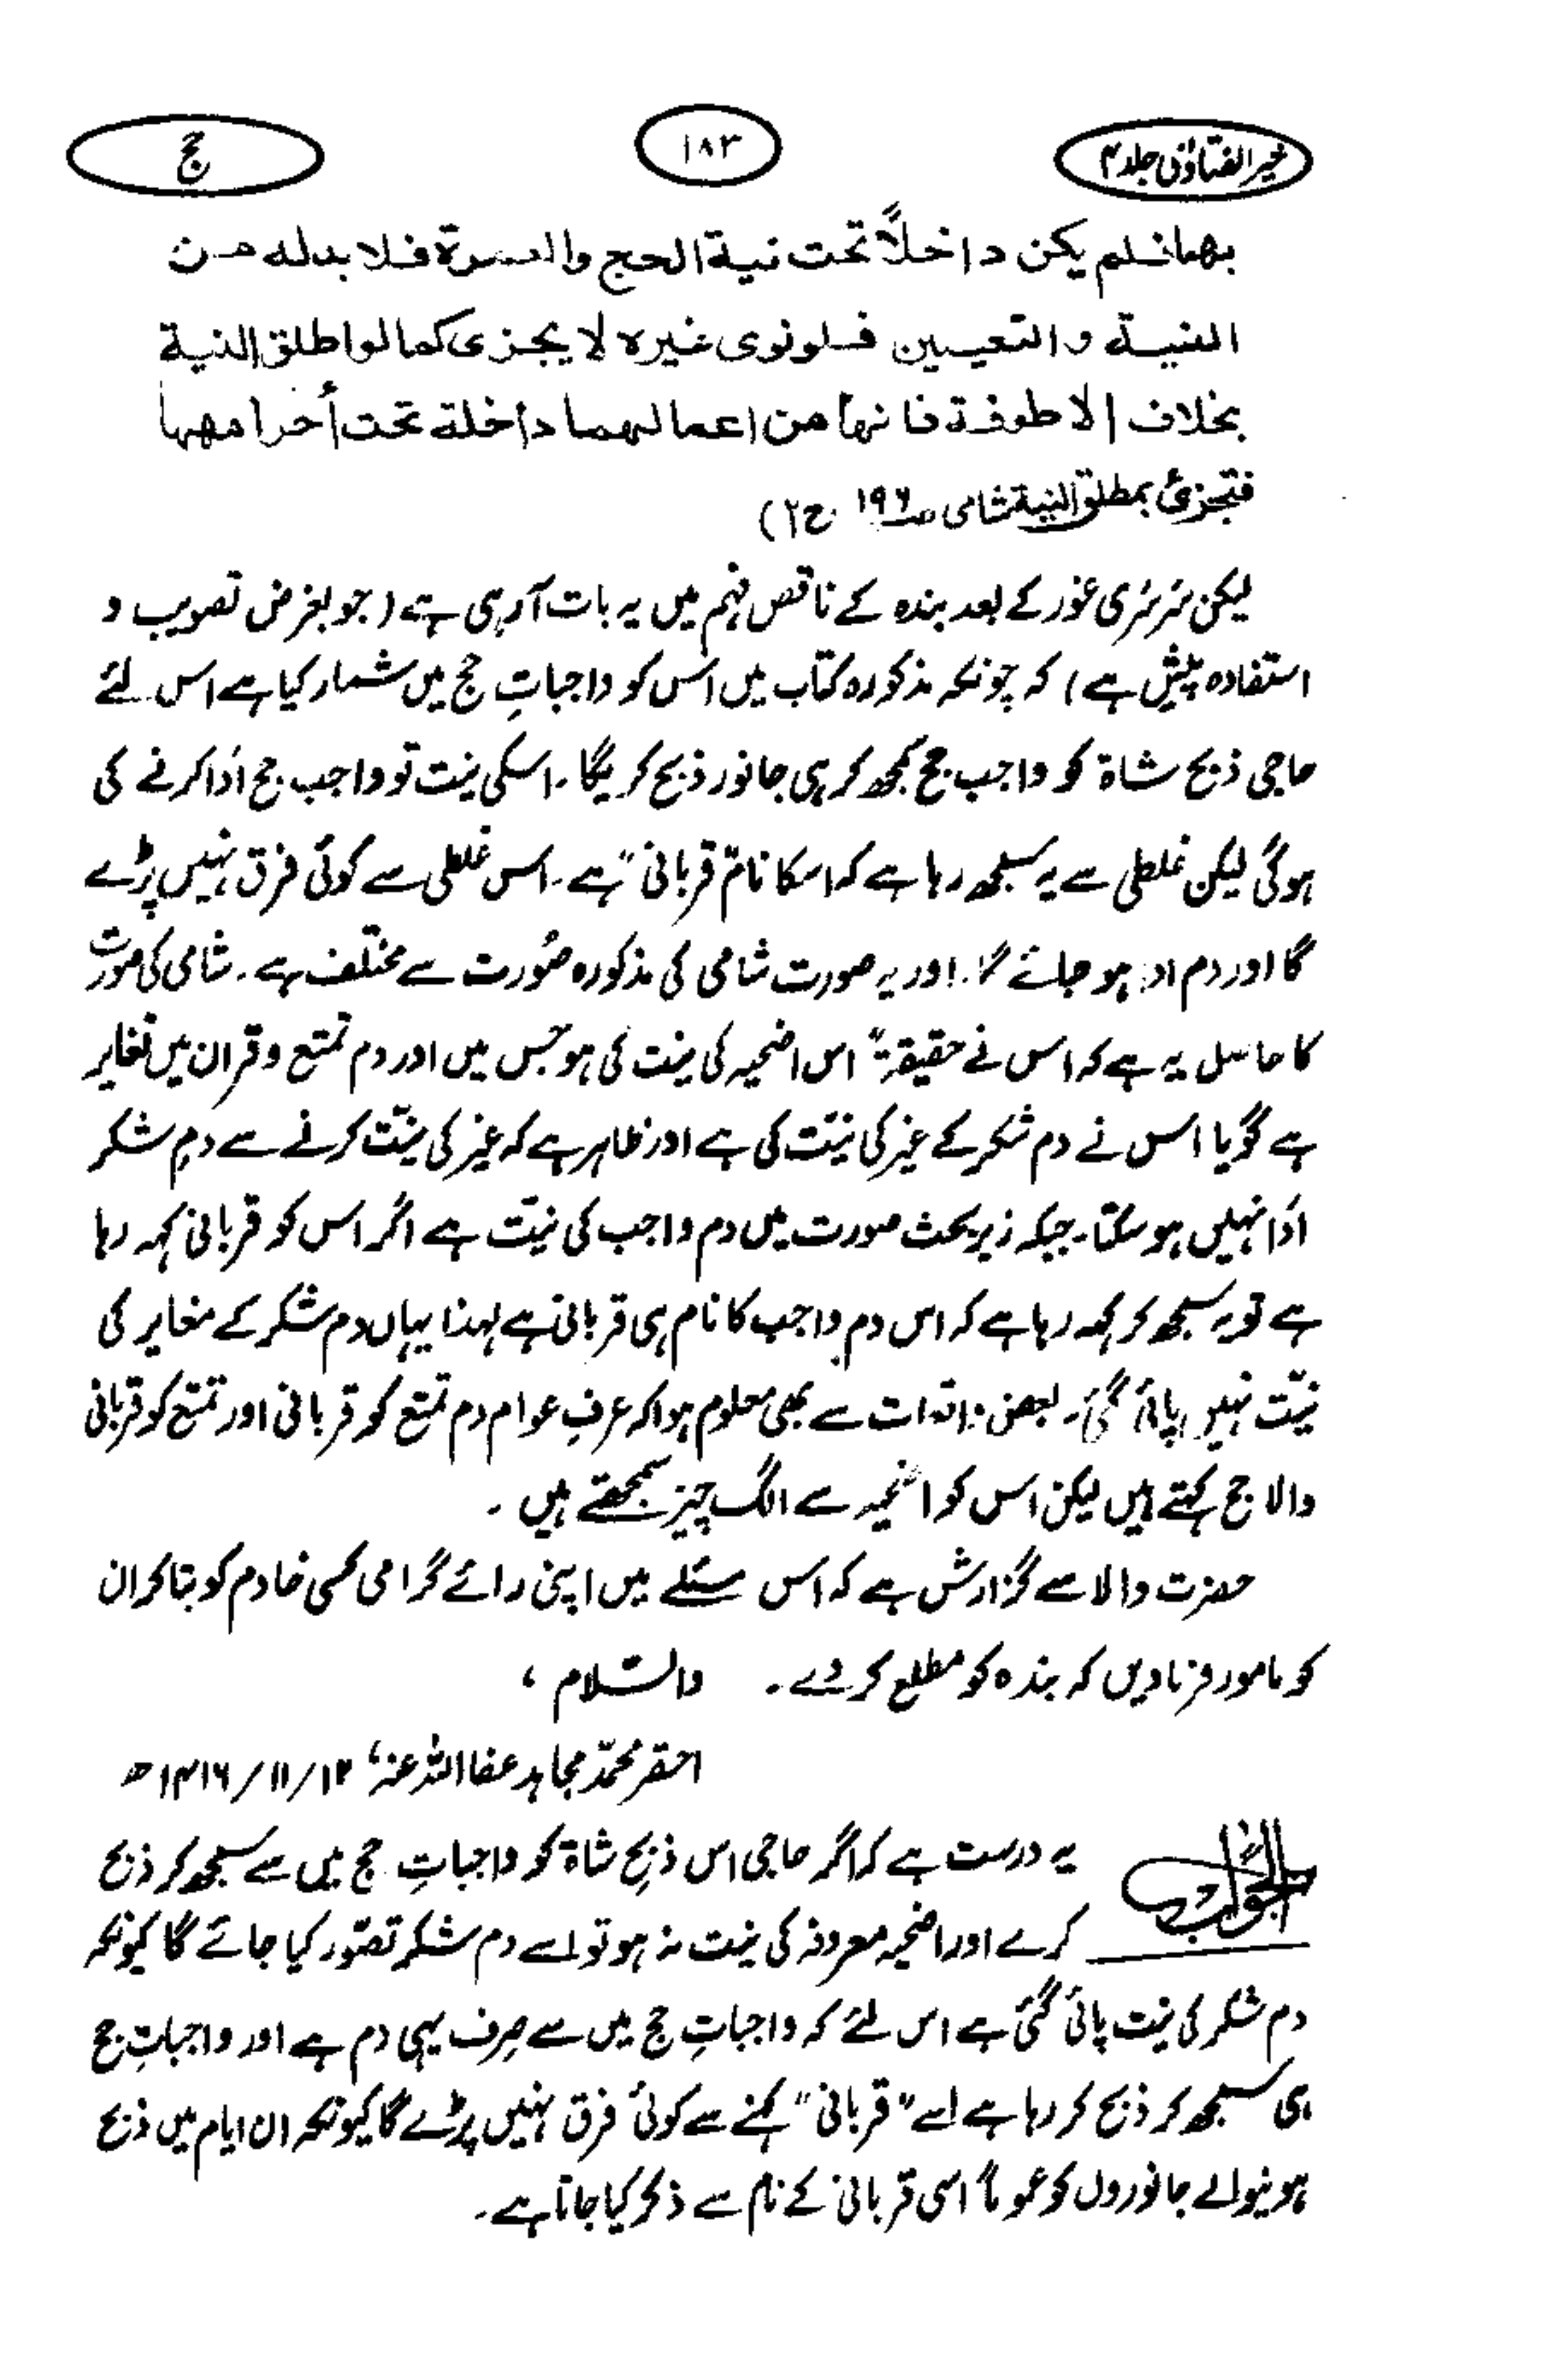 خیر الفتاوٰی جلد ۴
۱۸۳
حج
بهما فلم يكن داخلاً تحت نية الحج والعمرة فلا بدله من
النية والتعيين فلو نوى غيره لا يجزى كما لو اطلق النية
بخلاف الاطوفة فانها من اعمالهما داخلة تحت أحرامهما
فتجزئ بمطلق النية شامی صـ۱۹۶ ج۲)
لیکن سَرسَری غور کے بعد بندہ کے ناقص فہم میں یہ بات آرہی ہے (جو بغرض تصویب و
استفادہ پیش ہے) کہ چونکہ مذکورہ کتاب میں اس کو واجباتِ حج میں شمار کیا ہے اس لئے
حاجی ذبح شاۃ کو واجب حج سمجھ کر ہی جانور ذبح کریگا۔ اسکی نیت تو واجب حج اَدا کرنے کی
ہوگی لیکن غلطی سے یہ سمجھ رہا ہے کہ اسکا نام "قربانی" ہے۔ اس غلطی سے کوئی فرق نہیں پڑے
گا اور دم ادا ہو جائے گا۔ اور یہ صورت شامی کی مذکورہ صُورت سے مختلف ہے۔ شامی کی صورت
کا حاصل یہ ہے کہ اس نے حقیقۃً اس اضحیہ کی نیت کی ہو جس میں اور دم تمتع و قران میں تغایر
ہے گویا اس نے دم شکر کے غیر کی نیّت کی ہے اور ظاہر ہے کہ غیر کی نیّت کرنے سے دمِ شکر
اَدا نہیں ہو سکتا۔ جبکہ زیر بحث صورت میں دم واجب کی نیّت ہے اگر اس کو قربانی کہہ رہا
ہے تو یہ سمجھ کر کہہ رہا ہے کہ اس دم واجب کا نام ہی قربانی ہے لہٰذا یہاں دم شکر کے مغایر کی
نیّت نہیں پائی گئی۔ بعض واقعات سے بھی معلوم ہوا کہ عرفِ عوام دم تمتع کو قربانی اور تمتع کو قربانی
والا حج کہتے ہیں لیکن اس کو اضحیہ سے الگ چیز سمجھتے ہیں۔
حضرت والا سے گزارش ہے کہ اس مسئلے میں اپنی رائے گرامی کسی خادم کو بتا کر ان
کو مامور فرمادیں کہ بندہ کو مطلع کر دے۔ والسّلام،
احقر محمّد مجاہد عفا اللہ عنہ، ۱۳/۱۱/۱۴۱۶ھ
الجواب
یہ درست ہے کہ اگر حاجی اس ذبح شاۃ کو واجباتِ حج میں سے سمجھ کر ذبح
کرے اور اضحیہ معروفہ کی نیت نہ ہو تو اسے دم شکر تصّور کیا جائے گا کیونکہ
دم شکر کی نیت پائی گئی ہے اس لئے کہ واجباتِ حج میں سے صِرف یہی دم ہے اور واجباتِ حج
ہی سمجھ کر ذبح کر رہا ہے اسے "قربانی" کہنے سے کوئی فرق نہیں پڑے گا کیونکہ ان ایام میں ذبح
ہونیوالے جانوروں کو عموماً اسی قربانی کے نام سے ذکر کیا جاتا ہے۔